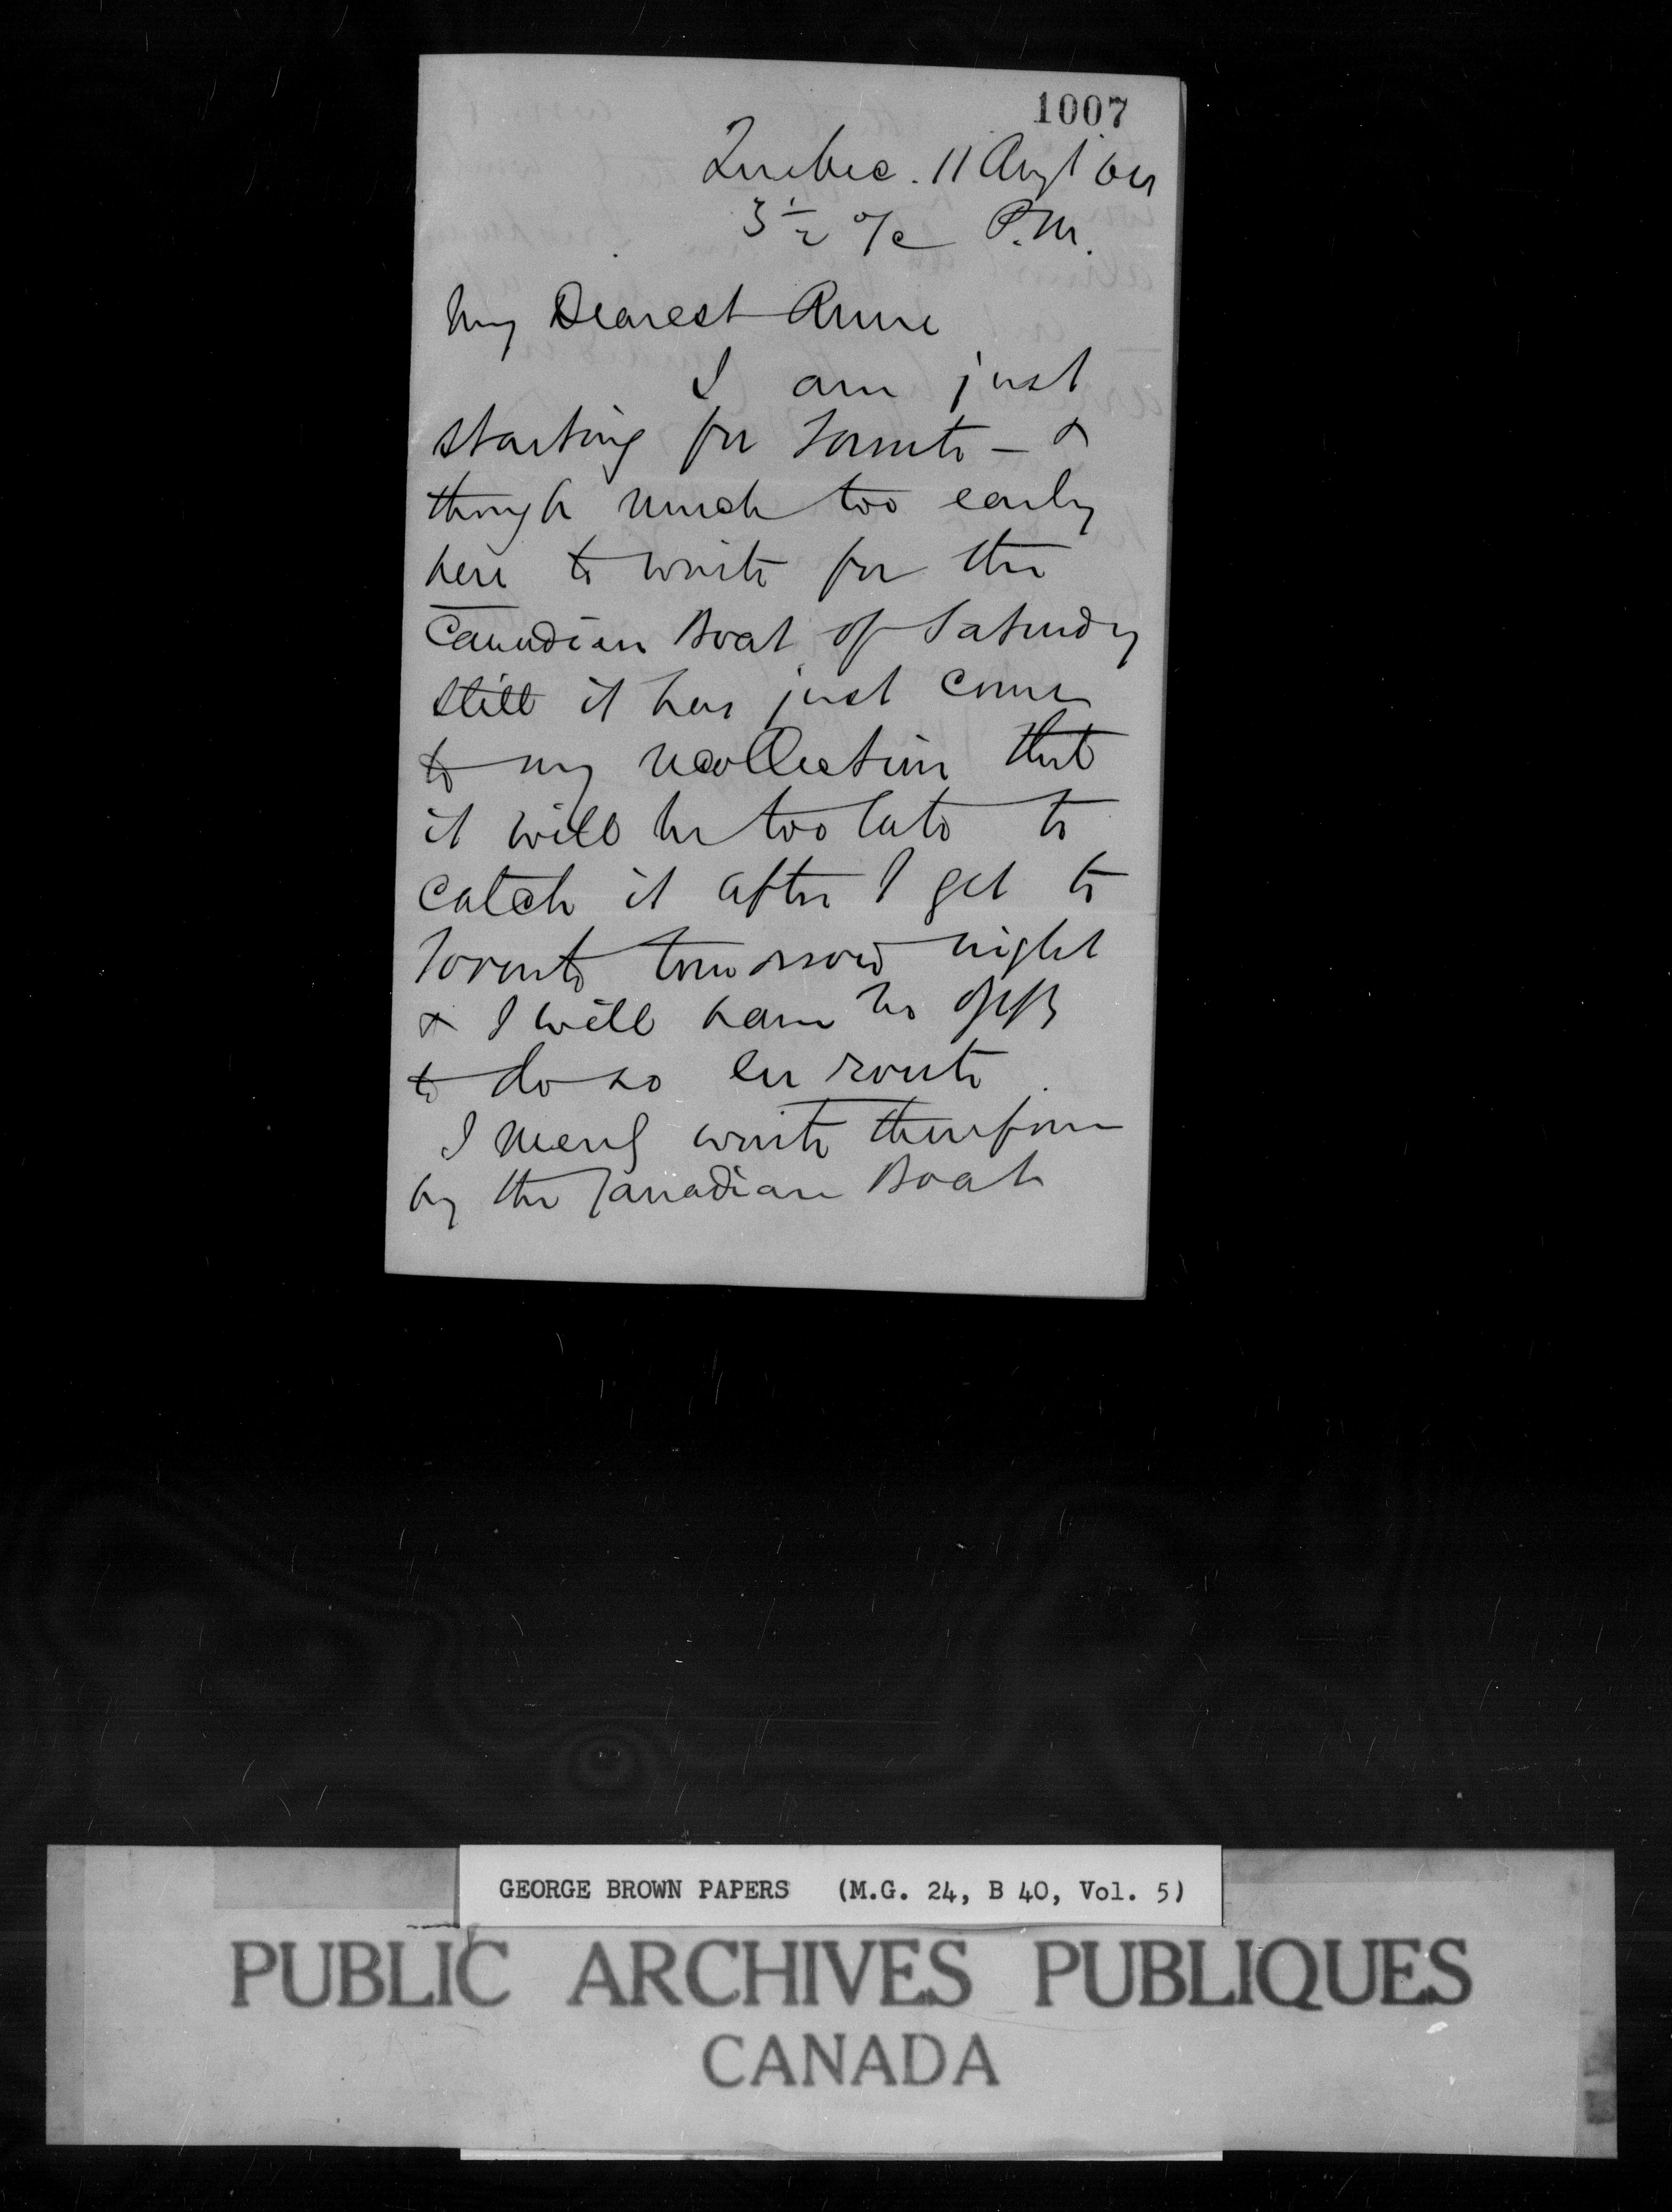 1007
Quebec. 11 Augt 64
3 1/2 o/c P.M.
My Dearest Anne
I am just
starting for Toronto - &
though much too early
here to write for the
Canadian Boat of Saturday
still it has just come
to my recollection that
it will be too late to
catch it after I get to
Toronto tomorrow night
& I will have no oppy
to do so en route
I merely write therefore
by the Canadian Boat
GEORGE BROWN PAPERS (M.G. 24, B 40, Vol. 5)
PUBLIC ARCHIVES PUBLIQUES
CANADA